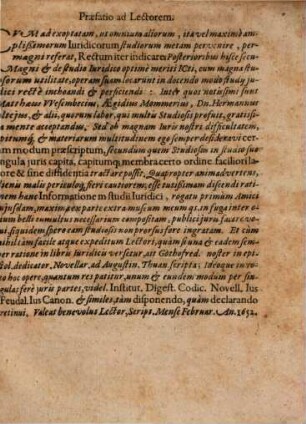 Præfatio ad Lectorem.
VM ad exoptatam, ut omnium aliorum, ita vel maximè am-
plissimorum Iuridicorum studiorum metam pervenire, per-
magni referat, Rectum iter indicare: Posterioribus hisce secu-
Magni & de studio Iuridico optimè meriti ICti, cum magna stu-
sorum utilitate, operam suam locarunt in docendo modo studij ju-
dici rectè inchoandi & perficiendi: Inter quos notissimi sunt
Matthæus Wesembecius, Ægidius Mommerius, Dn. Hermannus
ltejus, & alij, quorum labor, qui multis Studiosis profuit, gratissi-
ma mente acceptandus; Sed ob magnam Iuris nostri difficultatem,
pitumq́; & materiarum multitudinem ego semper desideravi cer-
tam modum præscriptum, secundum quem Studiosus in suum jus
ngula juris capita, capitumq́; membra certo ordine faciliori la-
ore & sine diffidentia tractare possit. Quapropter animadvertens,
lienu malis periculo, fieri cautiorem; esse tutissimam discendi rati-
nem hanc Informationem in studiis Iuridici, rogatu primùm Amici
ujusdam, maximè ex parte extra meum museum me in fuga inter c-
tium belli tumultus necessarium compositam, publici juris facere vo-
lui: siquidem spero eam studiosis non prorsus fore ingratam. Et cùm
nihil tàm facile atque expeditum Lectori, quàm si una & eadem sem-
per ratione in libris Iuridicis versetur, ait Gothofred. noster in epi-
stol. dedicator. Novellar. ad Augustin. Thuan. scripta; Ideoque in to-
to hoc opere, quantum res patitur, unum & eundem modum per sin-
gulas ferè juris partes, videl. Institut. Digest. Codic. Novell. Ius
Feudal. Ius Canon. & similes, tàm disponendo, quàm declarando
retinui. Valeat benevolus Lector. Script. Mense Februar. An. 1652.